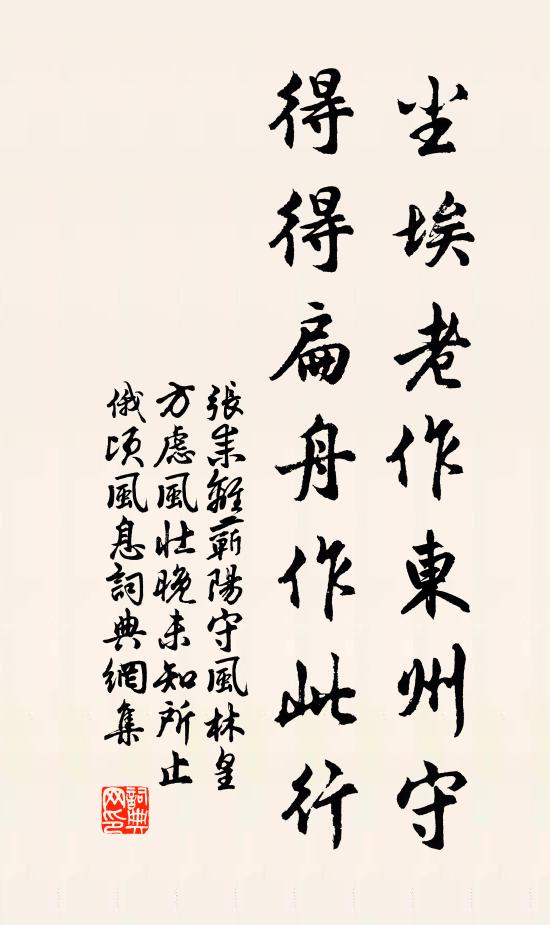 坐埃老作東州守
得得扁舟作此行
張耒離蘄陽守風林皇
方慮風壯晚未知所止
俄頃風息詞典網集
詞典網印